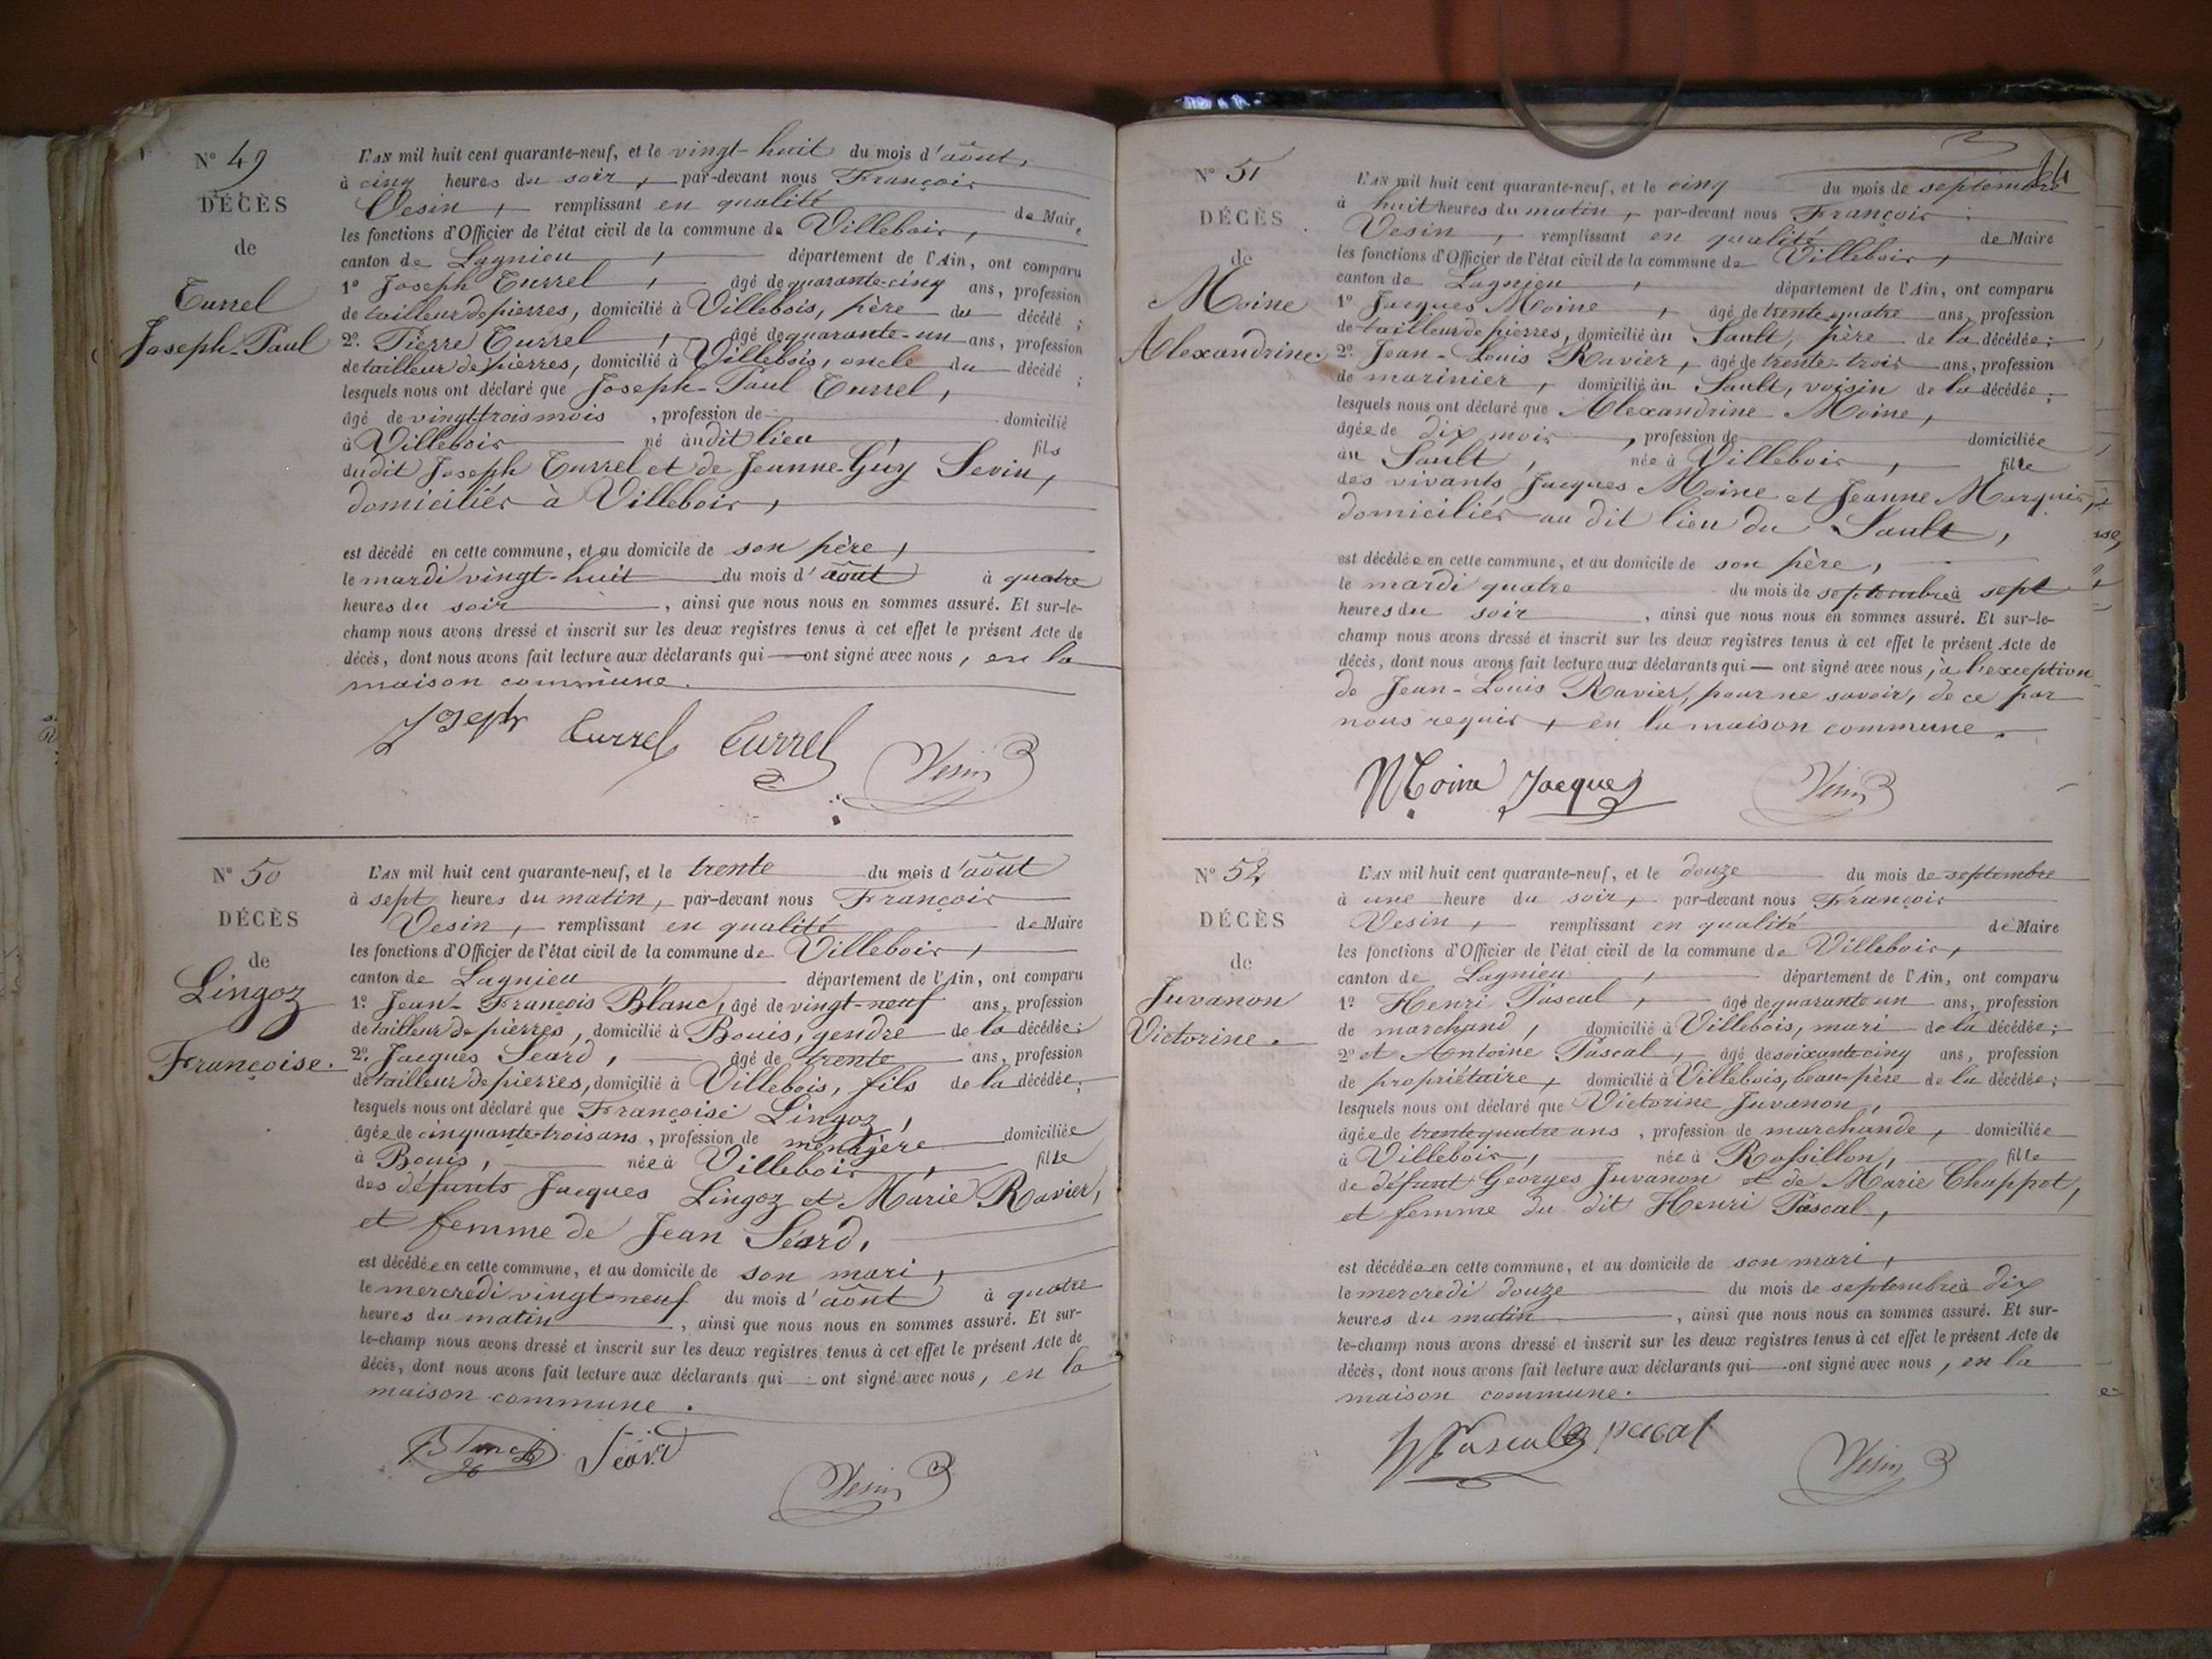 N° 49
DÉCÈS
de
Turrel
Joseph-Paul
L'AN mil huit cent quarante-neuf, et le vingt-huit du mois d'août,
à cinq heures du soir, par-devant nous François
Vesin, remplissant en qualité de Maire,
les fonctions d'Officier de l'état civil de la commune de Villebois,
canton de Lagnieu, département de l'Ain, ont comparu
1° Joseph Turrel, âgé de quarante-cinq ans, profession
de tailleur de pierres, domicilié à Villebois, père du décédé ;
2° Pierre Turrel, âgé de quarante-un ans, profession
de tailleur de pierres, domicilié à Villebois, oncle du décédé ;
lesquels nous ont déclaré que Joseph-Paul Turrel,
âgé de vingt trois mois, profession de domicilié
à Villebois né audit lieu, fils
dudit Joseph Turrel et de Jeanne Guy Sevin,
domiciliés à Villebois,
est décédé en cette commune, et au domicile de son père,
le mardi vingt-huit du mois d'août à quatre
heures du soir, ainsi que nous nous en sommes assuré. Et sur-le-
champ nous avons dressé et inscrit sur les deux registres tenus à cet effet le présent Acte de
décès, dont nous avons fait lecture aux déclarants qui — ont signé avec nous, en la
maison commune.
Joseph Turrel Turrel Vesin
N° 50
DÉCÈS
de
Lingoz
Françoise.
L'AN mil huit cent quarante-neuf, et le trente du mois d'août
à sept heures du matin, par-devant nous François
Vesin, remplissant en qualité de Maire
les fonctions d'Officier de l'état civil de la commune de Villebois,
canton de Lagnieu, département de l'Ain, ont comparu
1° Jean-François Blanc, âgé de vingt-neuf ans, profession
de tailleur de pierres, domicilié à Bouis, gendre de la décédée ;
2° Jacques Seard, âgé de trente ans, profession
de tailleur de pierres, domicilié à Villebois, fils de la décédée ;
lesquels nous ont déclaré que Françoise Lingoz,
âgée de cinquante-trois ans, profession de ménagère domiciliée
à Bouis, née à Villebois, fille
des défunts Jacques Lingoz et Marie Ravier,
et femme de Jean Séard,
est décédée en cette commune, et au domicile de son mari,
le mercredi vingt-neuf du mois d'août à quatre
heures du matin, ainsi que nous nous en sommes assuré. Et sur-
le-champ nous avons dressé et inscrit sur les deux registres tenus à cet effet le présent Acte de
décès, dont nous avons fait lecture aux déclarants qui — ont signé avec nous, en la
maison commune.
Blanc Séard
Vesin
N° 51
DÉCÈS
de
Moine
Alexandrine.
L'AN mil huit cent quarante-neuf, et le cinq du mois de septembre
à huit heures du matin, par-devant nous François
Vesin, remplissant en qualité de Maire
les fonctions d'Officier de l'état civil de la commune de Villebois,
canton de Lagnieu, département de l'Ain, ont comparu
1° Jacques Moine, âgé de trente quatre ans, profession
de tailleur de pierres, domicilié au Sault, père de la décédée ;
2° Jean-Louis Ravier, âgé de trente-trois ans, profession
de marinier, domicilié au Sault, voisin de la décédée ;
lesquels nous ont déclaré que Alexandrine Moine,
âgée de dix mois, profession de domiciliée
au Sault, née à Villebois, fille
des vivants Jacques Moine et Jeanne Marquis,
domiciliés au dit lieu du Sault,
est décédée en cette commune, et au domicile de son père,
le mardi quatre du mois de septembre à sept
heures du soir, ainsi que nous nous en sommes assuré. Et sur-le-
champ nous avons dressé et inscrit sur les deux registres tenus à cet effet le présent Acte de
décès, dont nous avons fait lecture aux déclarants qui — ont signé avec nous, à l'exception
de Jean-Louis Ravier, pour ne savoir, de ce par
nous requis, en la maison commune.
Moine Jacques Vesin
N° 52
DÉCÈS
de
Juvanon
Victorine.
L'AN mil huit cent quarante-neuf, et le douze du mois de septembre
à une heure du soir, par-devant nous François
Vesin, remplissant en qualité de Maire
les fonctions d'Officier de l'état civil de la commune de Villebois,
canton de Lagnieu, département de l'Ain, ont comparu
1° Henri Pascal, âgé de quarante un ans, profession
de marchand, domicilié à Villebois, mari de la décédée ;
2° et Antoine Pascal, âgé de soixante-cinq ans, profession
de propriétaire, domicilié à Villebois, beau-père de la décédée ;
lesquels nous ont déclaré que Victorine Juvanon,
âgée de trente quatre ans, profession de marchande, domiciliée
à Villebois, née à Rossillon, fille
de défunt Georges Juvanon et de Marie Chappot,
et femme du dit Henri Pascal,
est décédée en cette commune, et au domicile de son mari,
le mercredi douze du mois de septembre à dix
heures du matin, ainsi que nous nous en sommes assuré. Et sur-
le-champ nous avons dressé et inscrit sur les deux registres tenus à cet effet le présent Acte de
décès, dont nous avons fait lecture aux déclarants qui — ont signé avec nous, en la
maison commune.
H Pascal pascal
Vesin